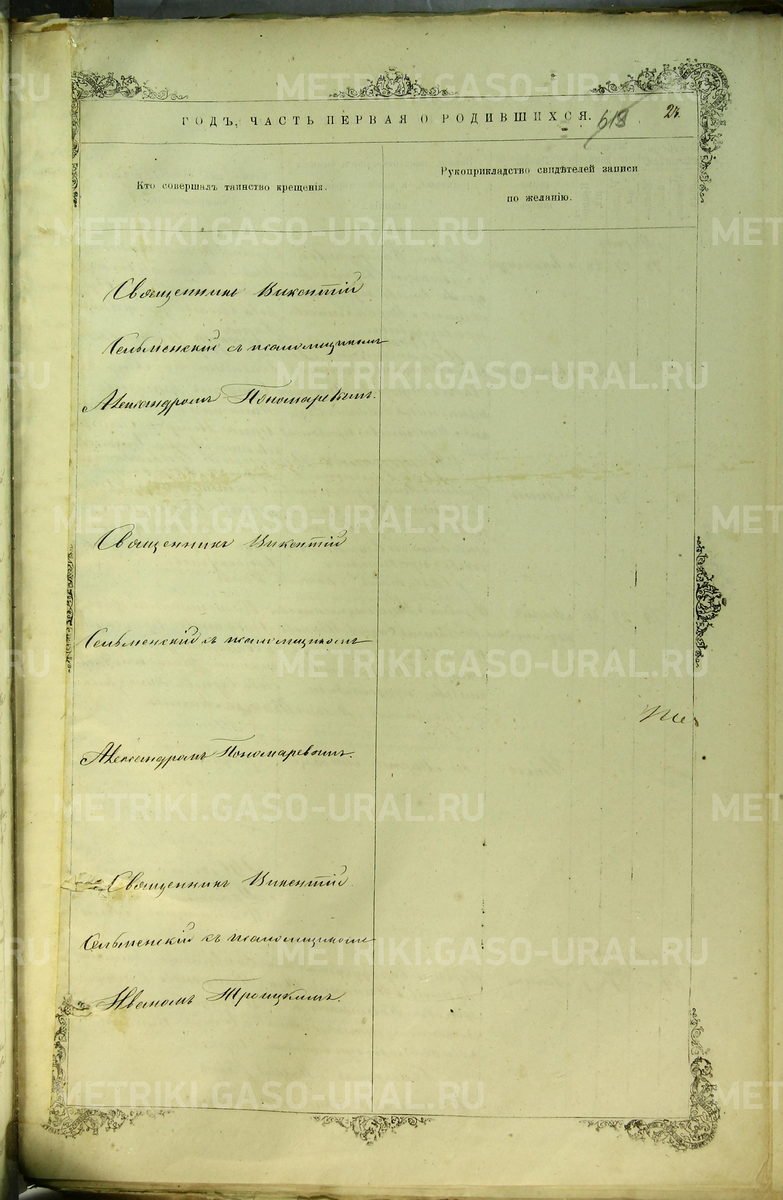 ГОДЪ, ЧАСТЬ ПЕРВАЯ О РОДИВШИХСЯ. 613 24.
Кто совершалъ таинство крещенія.
Рукоприкладство свидѣтелей записи
по желанію.
Священникъ Викентій
Сельменскій съ псаломщикомъ
Александромъ Пономаревымъ.
Священникъ Викентій
Сельменскій съ псаломщикомъ
Александромъ Пономаревымъ.
Священникъ Викентій
Сельменскій съ псаломщикомъ
Иваномъ Троицкимъ.
METRIKI.GASO-URAL.RU